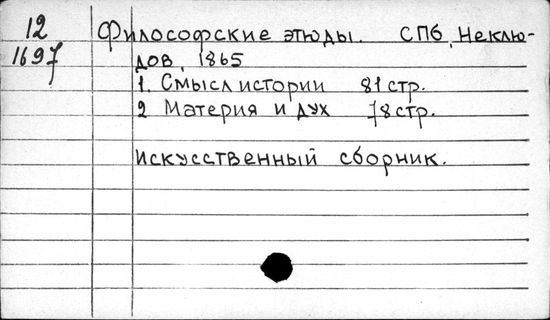 12 Философские этюды. СПб, Неклю-
1697 дов, 1865
1. Смысл истории 81 стр.
2 Материя и дух 78 стр.
искусственный сборник.